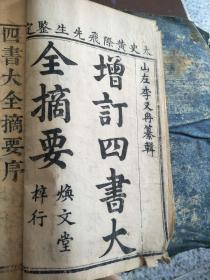 太史黃際飛先生鑒定
山左李又冉纂輯
增訂四書大
全摘要
煥文堂
梓行
四書大全摘要序